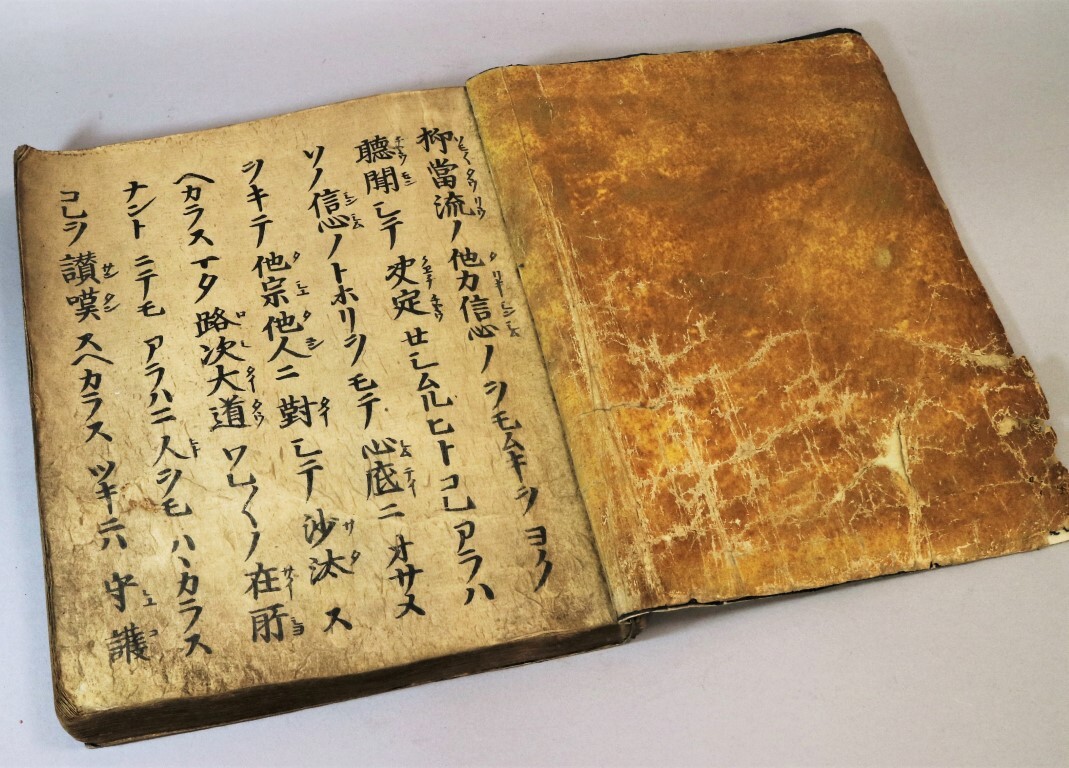 抑當流ノ他力信心ノヲモムキヲヨク
聽聞シテ决定セシムルヒトコレアラハ
ソノ信心ノトホリヲモテ心底ニオサメ
ヲキテ他宗他人ニ對シテ沙汰ス
ヘカラスマタ路次大道ワレ〱ノ在所
ナントニテモアラハニ人ヲモハヽカラス
コレヲ讃嘆スヘカラスツキニハ守護